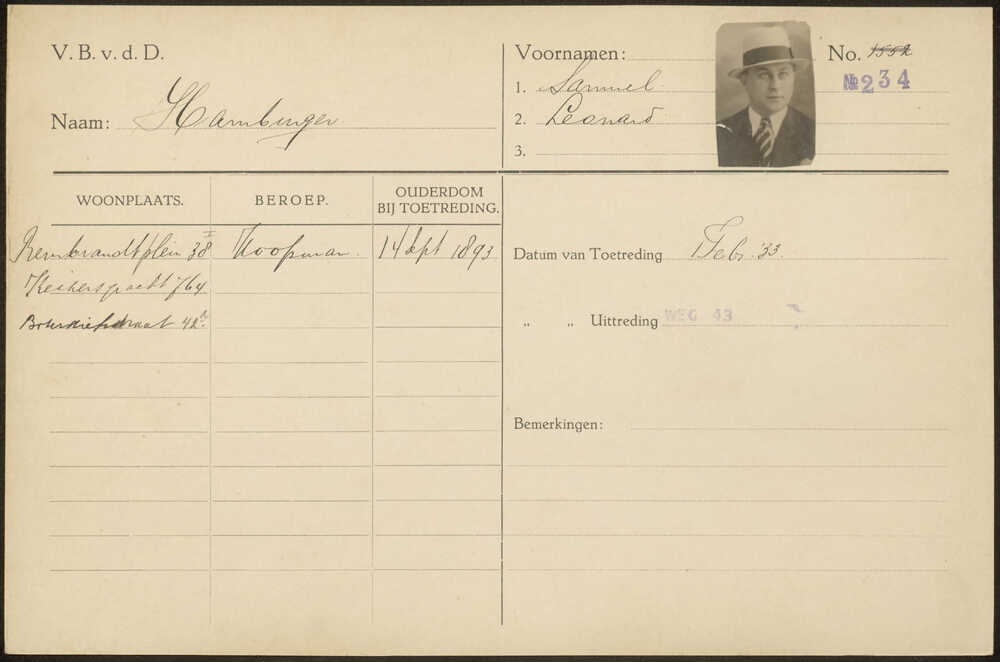 V. B. v. d. D.
Naam: Hamburger
Voornamen:
1. Samuel
2. Leonard
3.
No. 1552
№ 234
WOONPLAATS. BEROEP. OUDERDOM BIJ TOETREDING.
Rembrandtplein 38 I Koopman 14 Sept 1893
Keizersgracht 764
straat 42
Datum van Toetreding Febr. '33.
„ „ Uittreding WEG 43
Bemerkingen: